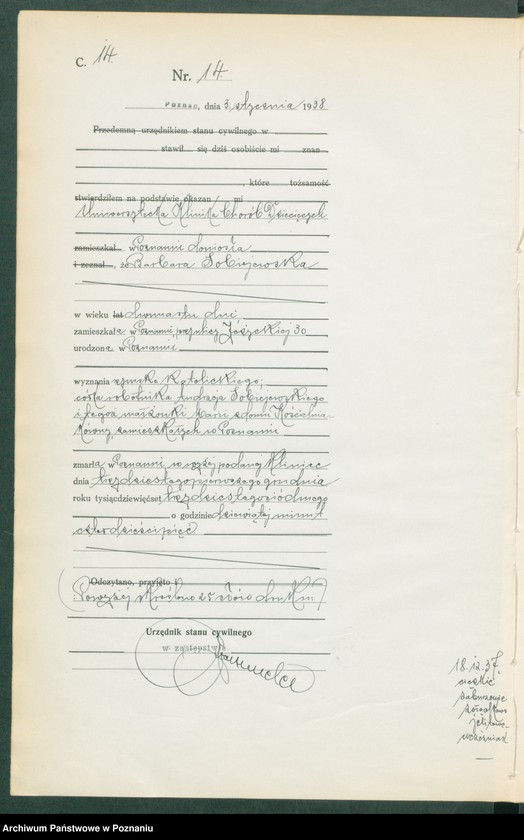 C. 14.
Nr. 14.
Poznań, dnia 3 stycznia 1938
Przedemną urzędnikiem stanu cywilnego w
stawił się dziś osobiście mi znan
, które tożsamość
stwierdziłem na podstawie okazan mi
Uniwersytecka Klinika Chorób Dziecięcych
zamieszkał w Poznaniu doniosła
i zeznał, że Barbara Sobiejewska
w wieku lat dwunastu dni,
zamieszkała w Poznaniu, przy ulicy Jeżyckiej 30
urodzona w Poznaniu
wyznania rzymsko katolickiego;
córka robotnika Andrzeja Sobiejewskiego
i jegoż małżonki Marii z domu
zamieszkałych w Poznaniu
zmarła w Poznaniu w wyżej podanej Klinice
dnia trzydziestego pierwszego grudnia
roku tysiącdziewięćset trzydziestego siódmego
o godzinie dziewiątej minut
czterdzieści pięć
Odczytano, przyjęto
Powyżej skreślono 25 słów druku
Urzędnik stanu cywilnego
w zastępstwie
18.12.37.
ciężkie
zaburzenie
żołądkowo
jelitowe
wcześniak
Archiwum Państwowe w Poznaniu